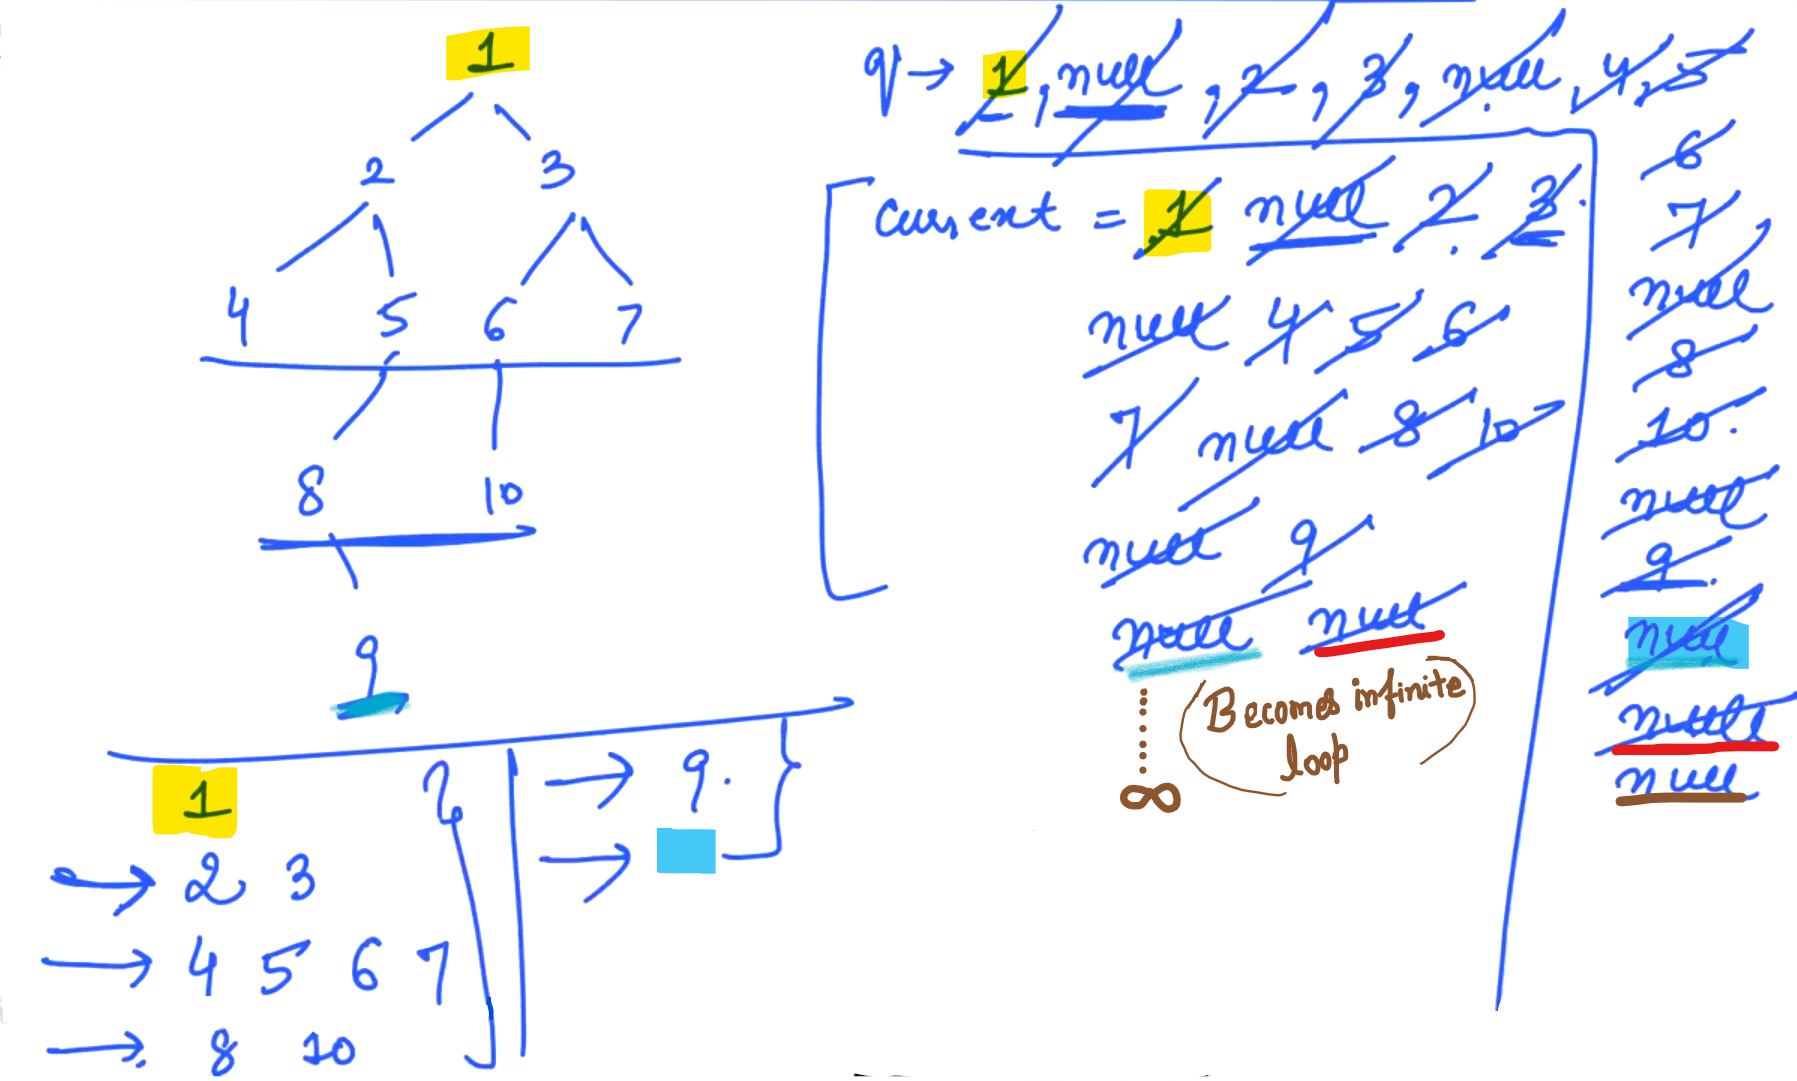 1
2 3
4 5 6 7
8 10
9
q → 1, null, 2, 3, null, 4, 5
6
7
null
8
10
null
9
null
null
null
Current = 1 null 2 3
null 4 5 6
7 null 8 10
null 9
null null
(Becomes infinite
loop)
∞
1
→ 2 3
→ 4 5 6 7
→ 8 10
→ 9.
→